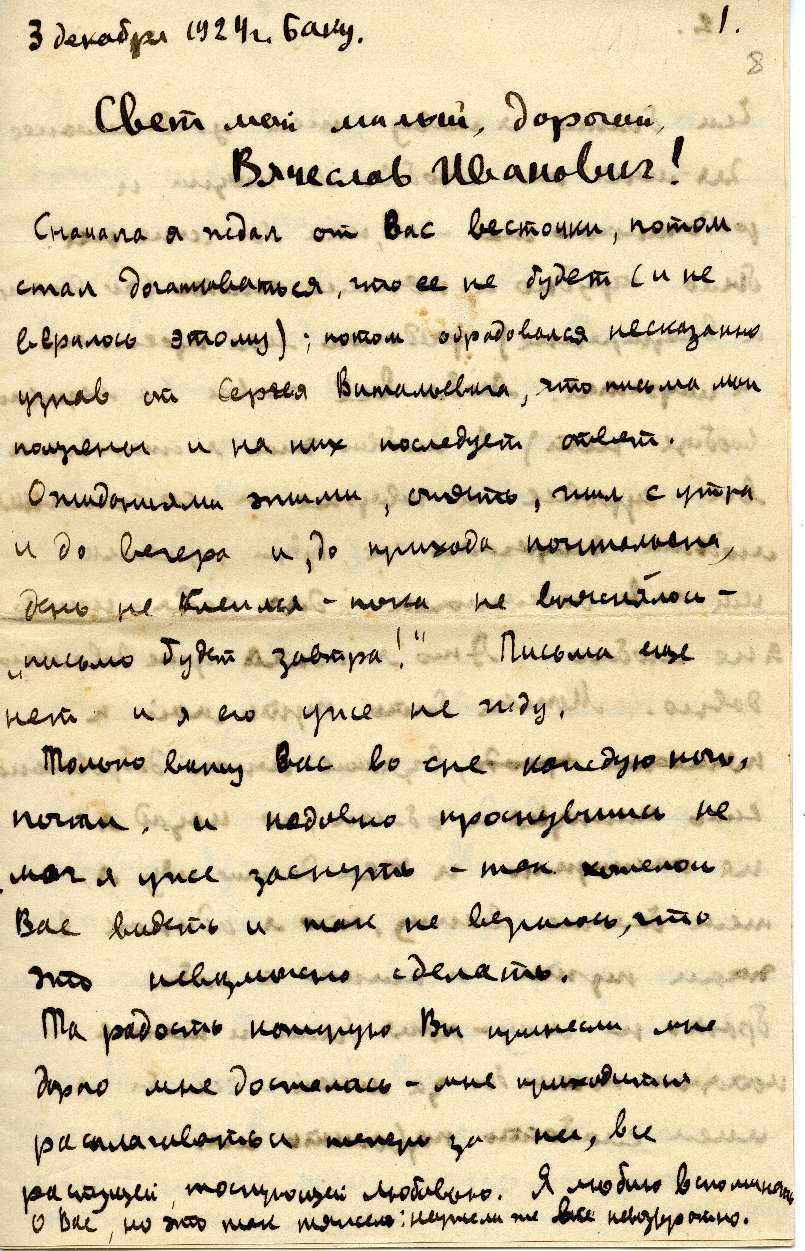 3 декабря 1924 г. Баку.
1.
8
Свет мой милый, дорогой,
Вячеслав Иванович!
Сначала я ждал от Вас весточки, потом
стал догадываться, что ее не будет (и не
верилось этому); потом обрадовался несказанно
узнав от Сергея Витальевича, что письма мои
получены и на них последует ответ.
Ожиданиями этими, опять, жил с утра
и до вечера и „до прихода почтальона"
день не клеился – пока не выяснялось –
„письмо будет завтра!" Письма еще
нет и я его уже не жду.
Только вижу Вас во сне каждую ночь,
почти, и недавно проснувшись не
мог я уже заснуть – так хотелось
Вас видеть и так не верилось, что
это невозможно сделать.
Та радость которую Вы принесли мне
дорого мне досталась – мне приходится
расплачиваться теперь за нее, все
растущей, тоскующей любовью. Я люблю вспоминать
о Вас, но это так тяжело: неужели же все невозвратно.